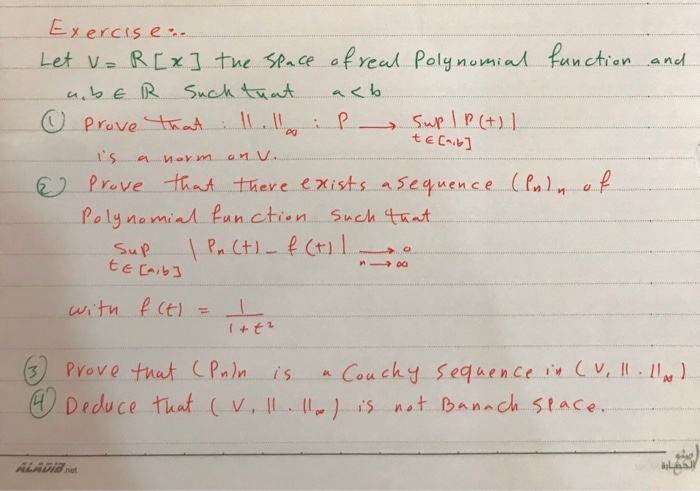 Exercise:.
Let V = R[x] the space of real Polynomial function and
a,b ∈ R such that a<b
① Prove that : ||.||∞ : P → Sup |P(t)|
t∈[a,b]
is a norm on V.
② Prove that there exists a sequence (Pn)n of
Polynomial function such that
Sup | Pn(t) - f(t) | → 0
t∈[a,b] n→∞
with f(t) = 1
1+t²
③ Prove that (Pn)n is a Couchy sequence in (V, ||.||∞)
④ Deduce that (V, ||.||∞) is not Banach space.